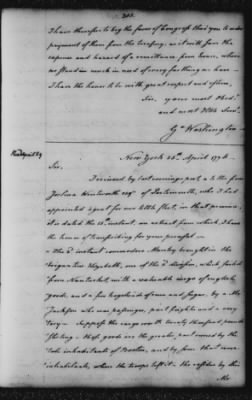 302.
I have therefore to beg the favor of Congress that you to order
payment of them from the treasury, as it will save the
expence and hazard of a remittance from home, where
we stand so much in need of every farthing we have.
I have the honor to be with great respect and esteem,
Sir, your most Obedt.
and most Hble Servt.
Go. Washington
New York 25th April 1776.
Sir,
I received by last evenings post a letter from
Joshua Wentworth Esqr. of Portsmouth, who I had
appointed agent for our little fleet, in that province,
it is dated the 15th instant, an extract from which I have
the honor of transcribing for your perusal —
"The 2d instant commodore Manley brought in the
Brigantine Elizabeth, one of the 2d division, which sailed
from Nantasket, with a valuable cargo of english
goods, and a few hogsheads of rum and sugar, by a Mr.
Jackson who was passenger, part freighter and a very
tory — Suppose the cargo worth twenty thousand pounds
sterling — these goods are the greater part owned by the
late inhabitants of Boston, and by some that were
inhabitants, when the troops left it — the residue by this
Mr